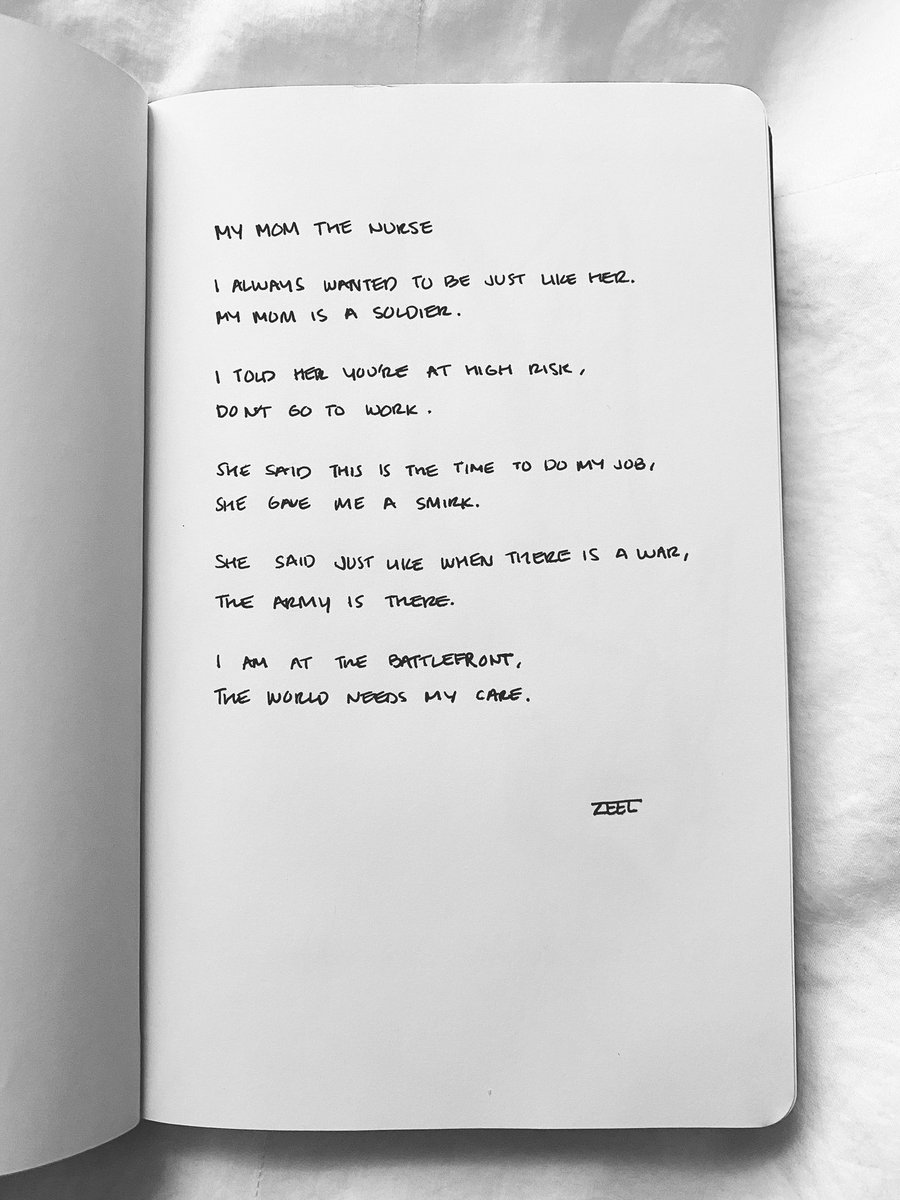 MY MOM THE NURSE
I ALWAYS WANTED TO BE JUST LIKE HER.
MY MOM IS A SOLDIER.
I TOLD HER YOU'RE AT HIGH RISK,
DON'T GO TO WORK.
SHE SAID THIS IS THE TIME TO DO MY JOB,
SHE GAVE ME A SMIRK.
SHE SAID JUST LIKE WHEN THERE IS A WAR,
THE ARMY IS THERE.
I AM AT THE BATTLEFRONT,
THE WORLD NEEDS MY CARE.
ZEEL